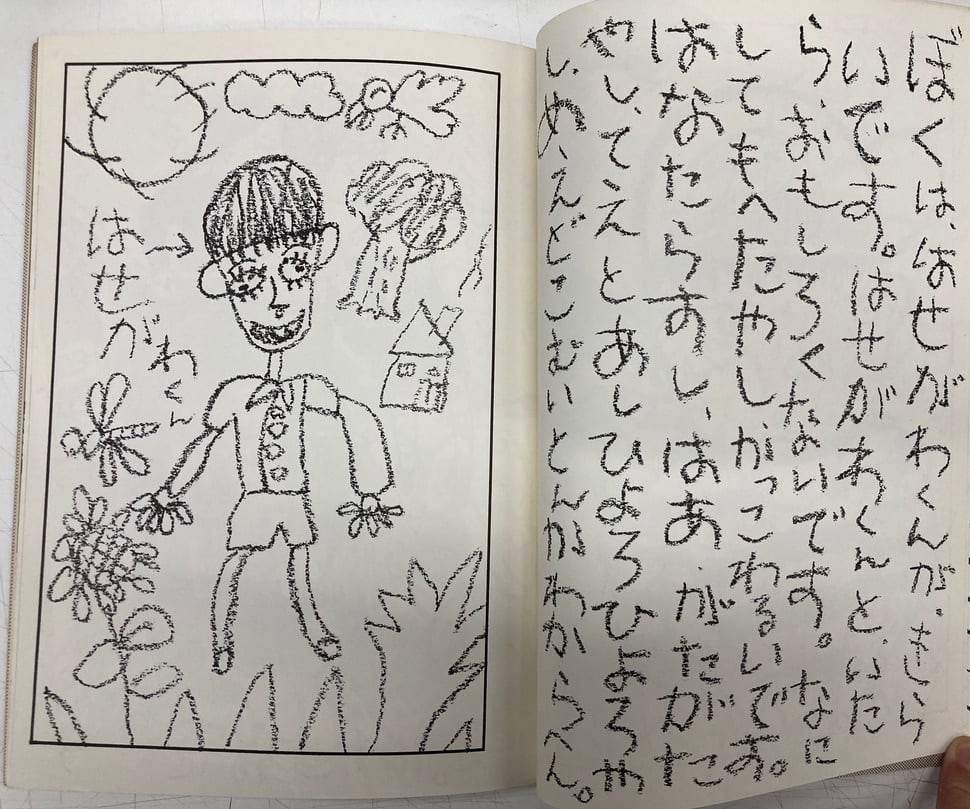 はせがわくん→
ぼくは、はせがわくんが、きら
いです。はせがわくんと、いた
ら、おもしろくないです。なに
してもへたやしかっこわるいです。
はなたらすし、はあ、がたがた
やし、てえとあしひょろひょろや
し、め、えどこむいとんかわからへん。